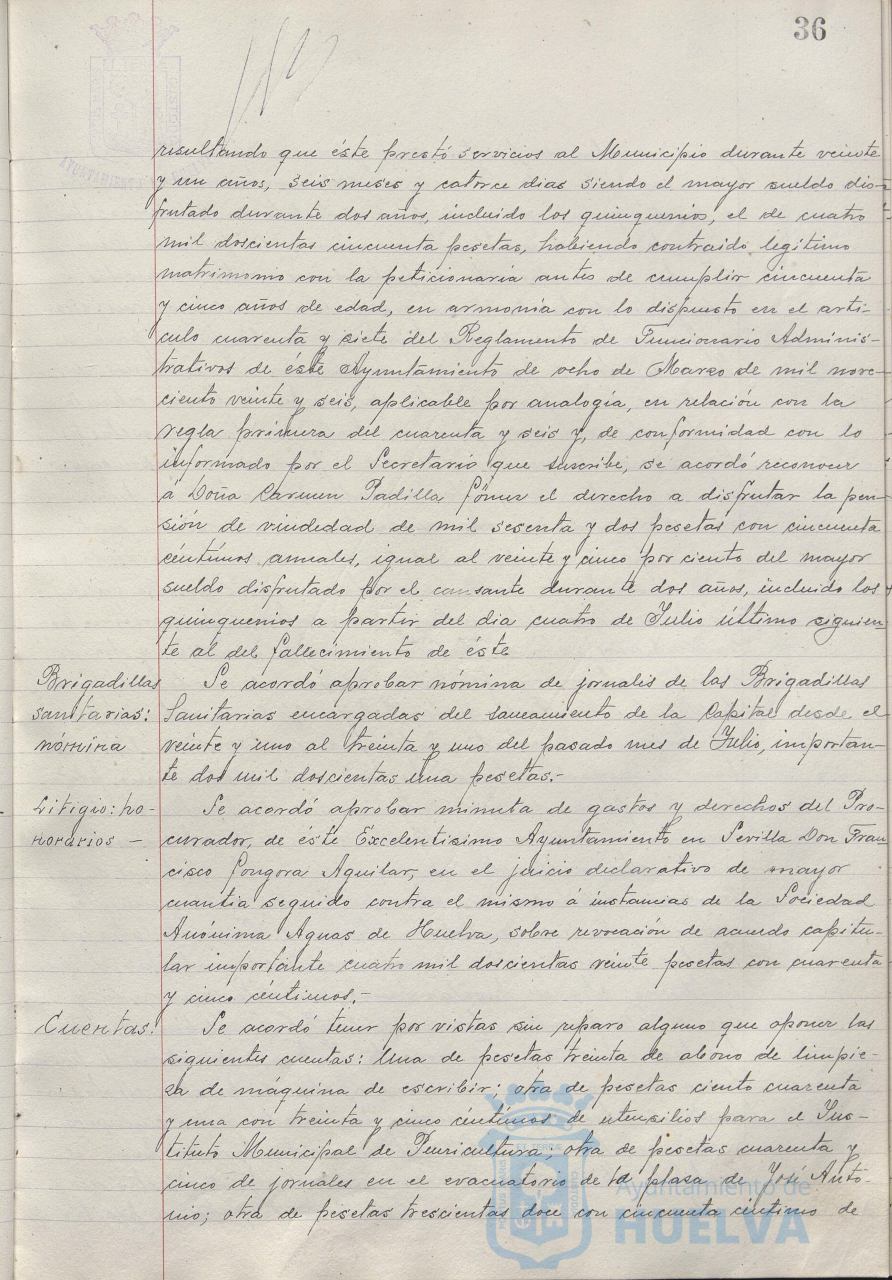 36
resultando que éste prestó servicios al Municipio durante veinte
y un años, seis meses y catorce dias siendo el mayor sueldo dis-
frutado durante dos años, incluido los quinquenios, el de cuatro
mil doscientas cincuenta pesetas, habiendo contraido legitimo
matrimonio con la peticionaria antes de cumplir cincuenta
y cinco años de edad, en armonía con lo dispuesto en el arti-
culo cuarenta y siete del Reglamento de Funcionario Adminis-
trativos de éste Ayuntamiento de ocho de Marzo de mil nove-
ciento veinte y seis, aplicable por analogía, en relación con la
regla primera del cuarenta y seis y, de conformidad con lo
informado por el Secretario que suscribe, se acordó reconocer
á Doña Carmen Padilla Gómez el derecho a disfrutar la pen-
sión de viudedad de mil sesenta y dos pesetas con cincuenta
céntimos anuales, igual al veinte y cinco por ciento del mayor
sueldo disfrutado por el causante durante dos años, incluido los
quinquenios a partir del dia cuatro de Julio último siguien-
te al del fallecimiento de éste
Brigadillas
sanitarias:
nómina
Se acordó aprobar nómina de jornales de las Brigadillas
Sanitarias encargadas del saneamiento de la Capital desde el
veinte y uno al treinta y uno del pasado mes de Julio, importan-
te dos mil doscientas una pesetas.-
Litigio: ho-
norarios -
Se acordó aprobar minuta de gastos y derechos del Pro-
curador, de éste Excelentisimo Ayuntamiento en Sevilla Don Fran
cisco Gongora Aguilar, en el juicio declarativo de mayor
cuantia seguido contra el mismo á instancias de la Sociedad
Anónima Aguas de Huelva, sobre revocación de acuerdo capitu-
lar importante cuatro mil doscientas veinte pesetas con cuarenta
y cinco céntimos.-
Cuentas:
Se acordó tener por vistas sin reparo alguno que oponer las
siguientes cuentas: Una de pesetas treinta de abono de limpie-
za de máquina de escribir; otra de pesetas ciento cuarenta
y una con treinta y cinco céntimos de utensilios para el Ins-
tituto Municipal de Puericultura; otra de pesetas cuarenta y
cinco de jornales en el evacuatorio de la plaza de José Anto-
nio; otra de pesetas trescientas doce con cincuenta céntimo de
Ayuntamiento de
HUELVA